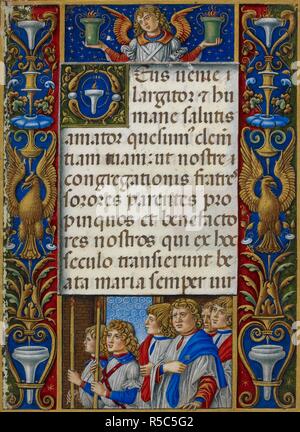 Deus uenie i
largitor ⁊ hu
mane salutis
amator quesumꝰ clem̄
tiam tuam: ut nostre
congregationis fratres
sorores parentes pro
pinquos et benefacto
res nostros qui ex hoc
seculo transierunt be
ata maria semper uir
alamy
www.alamy.com
R5C5G2